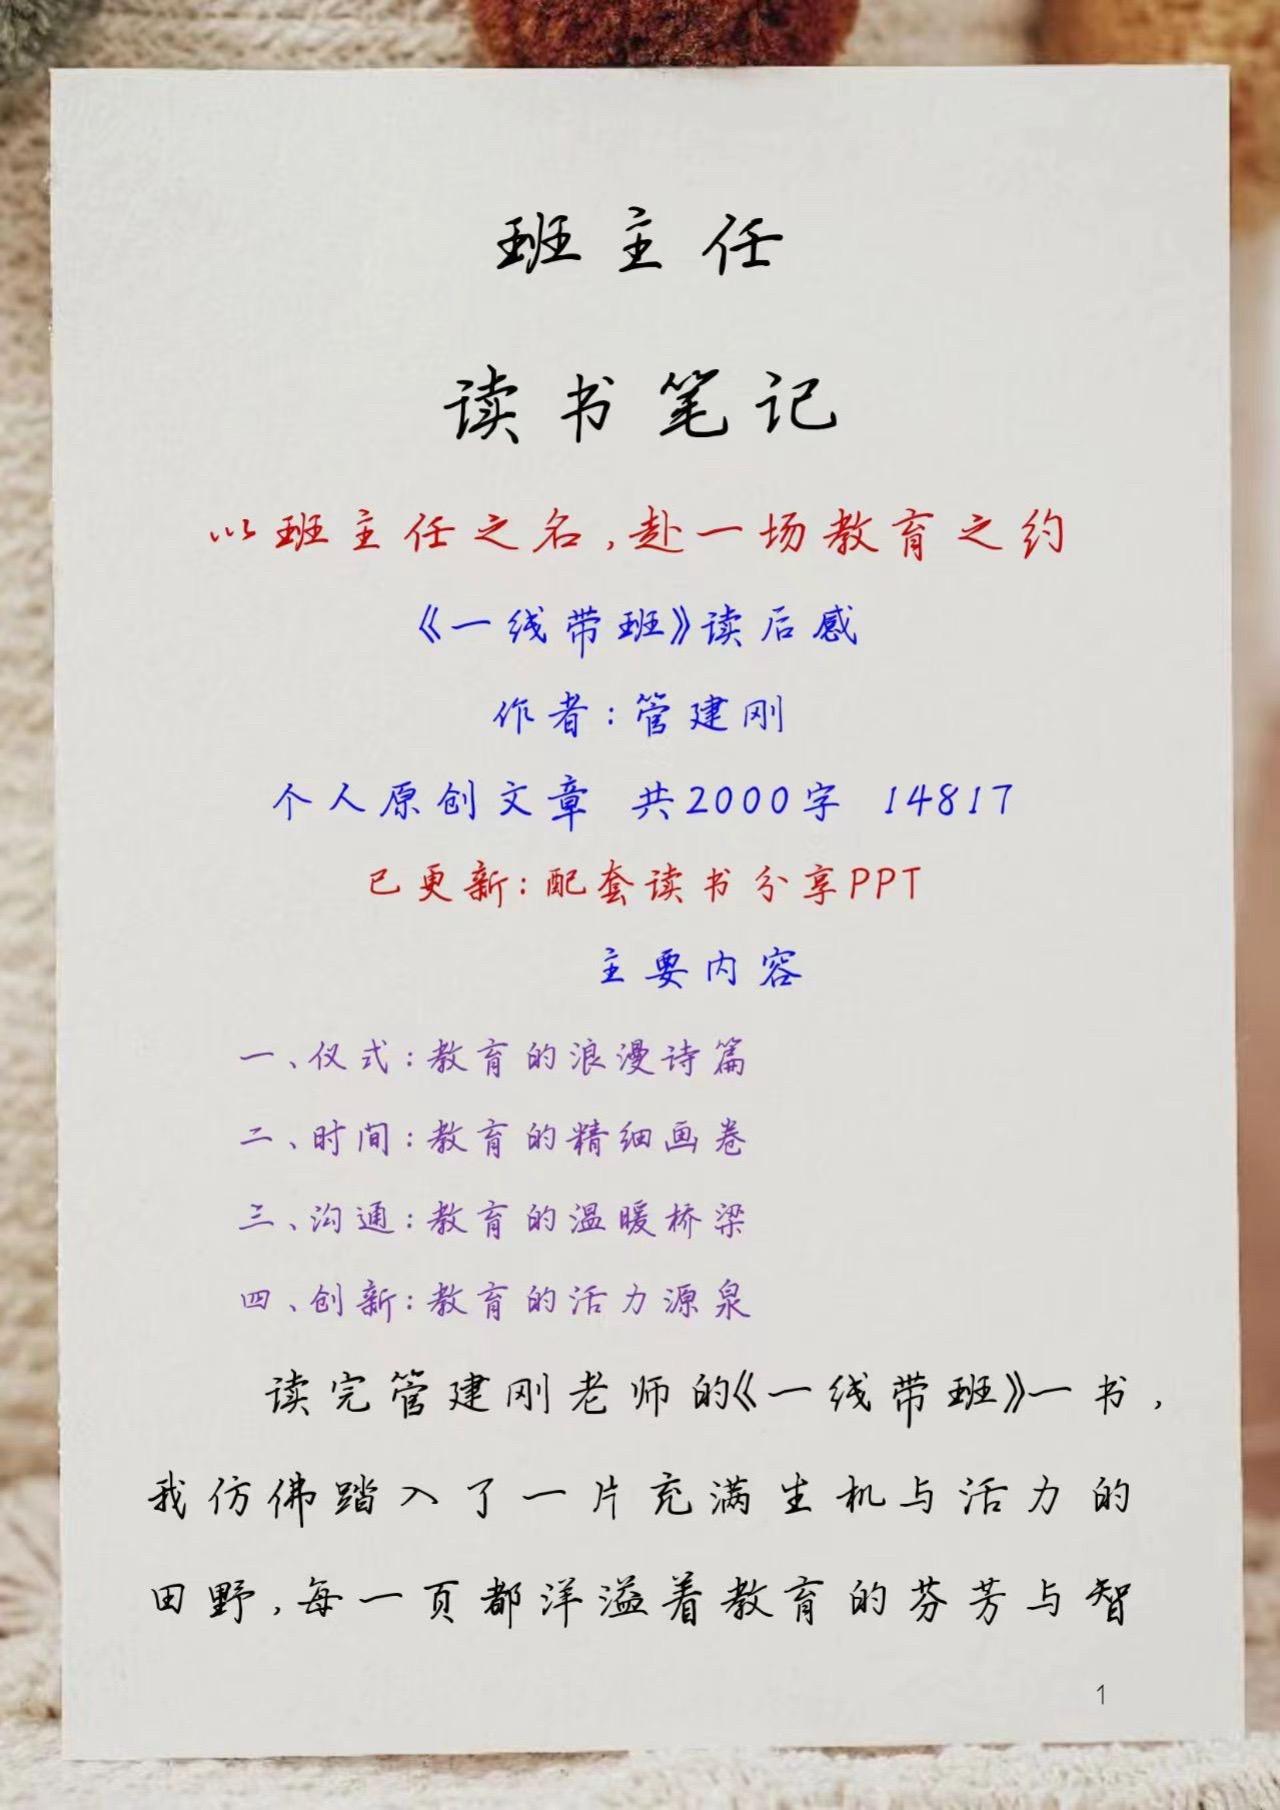 班主任
读书笔记
以班主任之名,赴一场教育之约
《一线带班》读后感
作者:管建刚
个人原创文章 共2000字 14817
已更新:配套读书分享PPT
主要内容
一、仪式:教育的浪漫诗篇
二、时间:教育的精细画卷
三、沟通:教育的温暖桥梁
四、创新:教育的活力源泉
读完管建刚老师的《一线带班》一书,
我仿佛踏入了一片充满生机与活力的
田野,每一页都洋溢着教育的芬芳与智
1